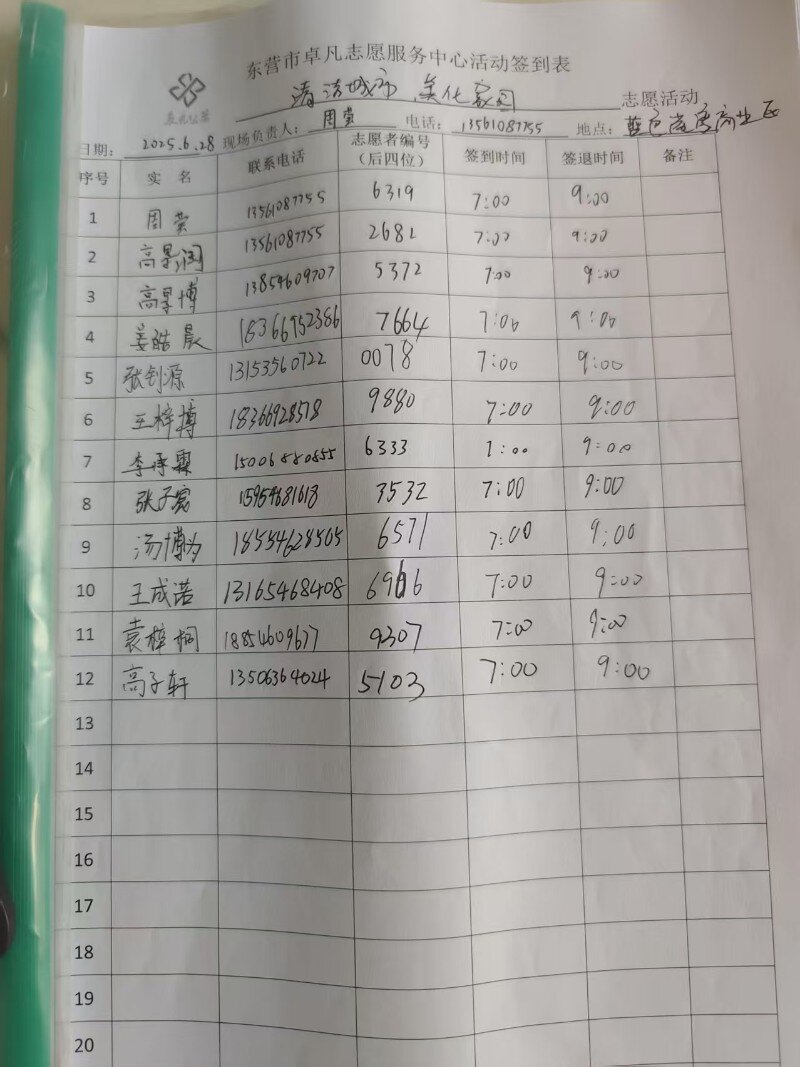 东营市卓凡志愿服务中心活动签到表
清洁城市 美化家园 志愿活动
日期: 2025.6.28 现场负责人: 周荣 电话: 13561087755 地点: 蓝色 商业区
序号 实 名 联系电话 志愿者编号（后四位） 签到时间 签退时间 备注
1 周荣 13561087755 6319 7:00 9:00
2 高 13561087755 2681 7:00 9:00
3 高 博 13854609707 5372 7:00 9:00
4 姜皓晨 18366952386 7664 7:00 9:00
5 张钊源 13153560722 0078 7:00 9:00
6 王梓博 18366928518 9880 7:00 9:00
7 李承霖 15006880855 6333 7:00 9:00
8 张子宸 15954681618 3532 7:00 9:00
9 汤博为 18554628505 6571 7:00 9:00
10 王成诺 13165468408 6966 7:00 9:00
11 袁梓桐 18854609677 9307 7:00 9:00
12 高子轩 13506364024 5103 7:00 9:00
13
14
15
16
17
18
19
20